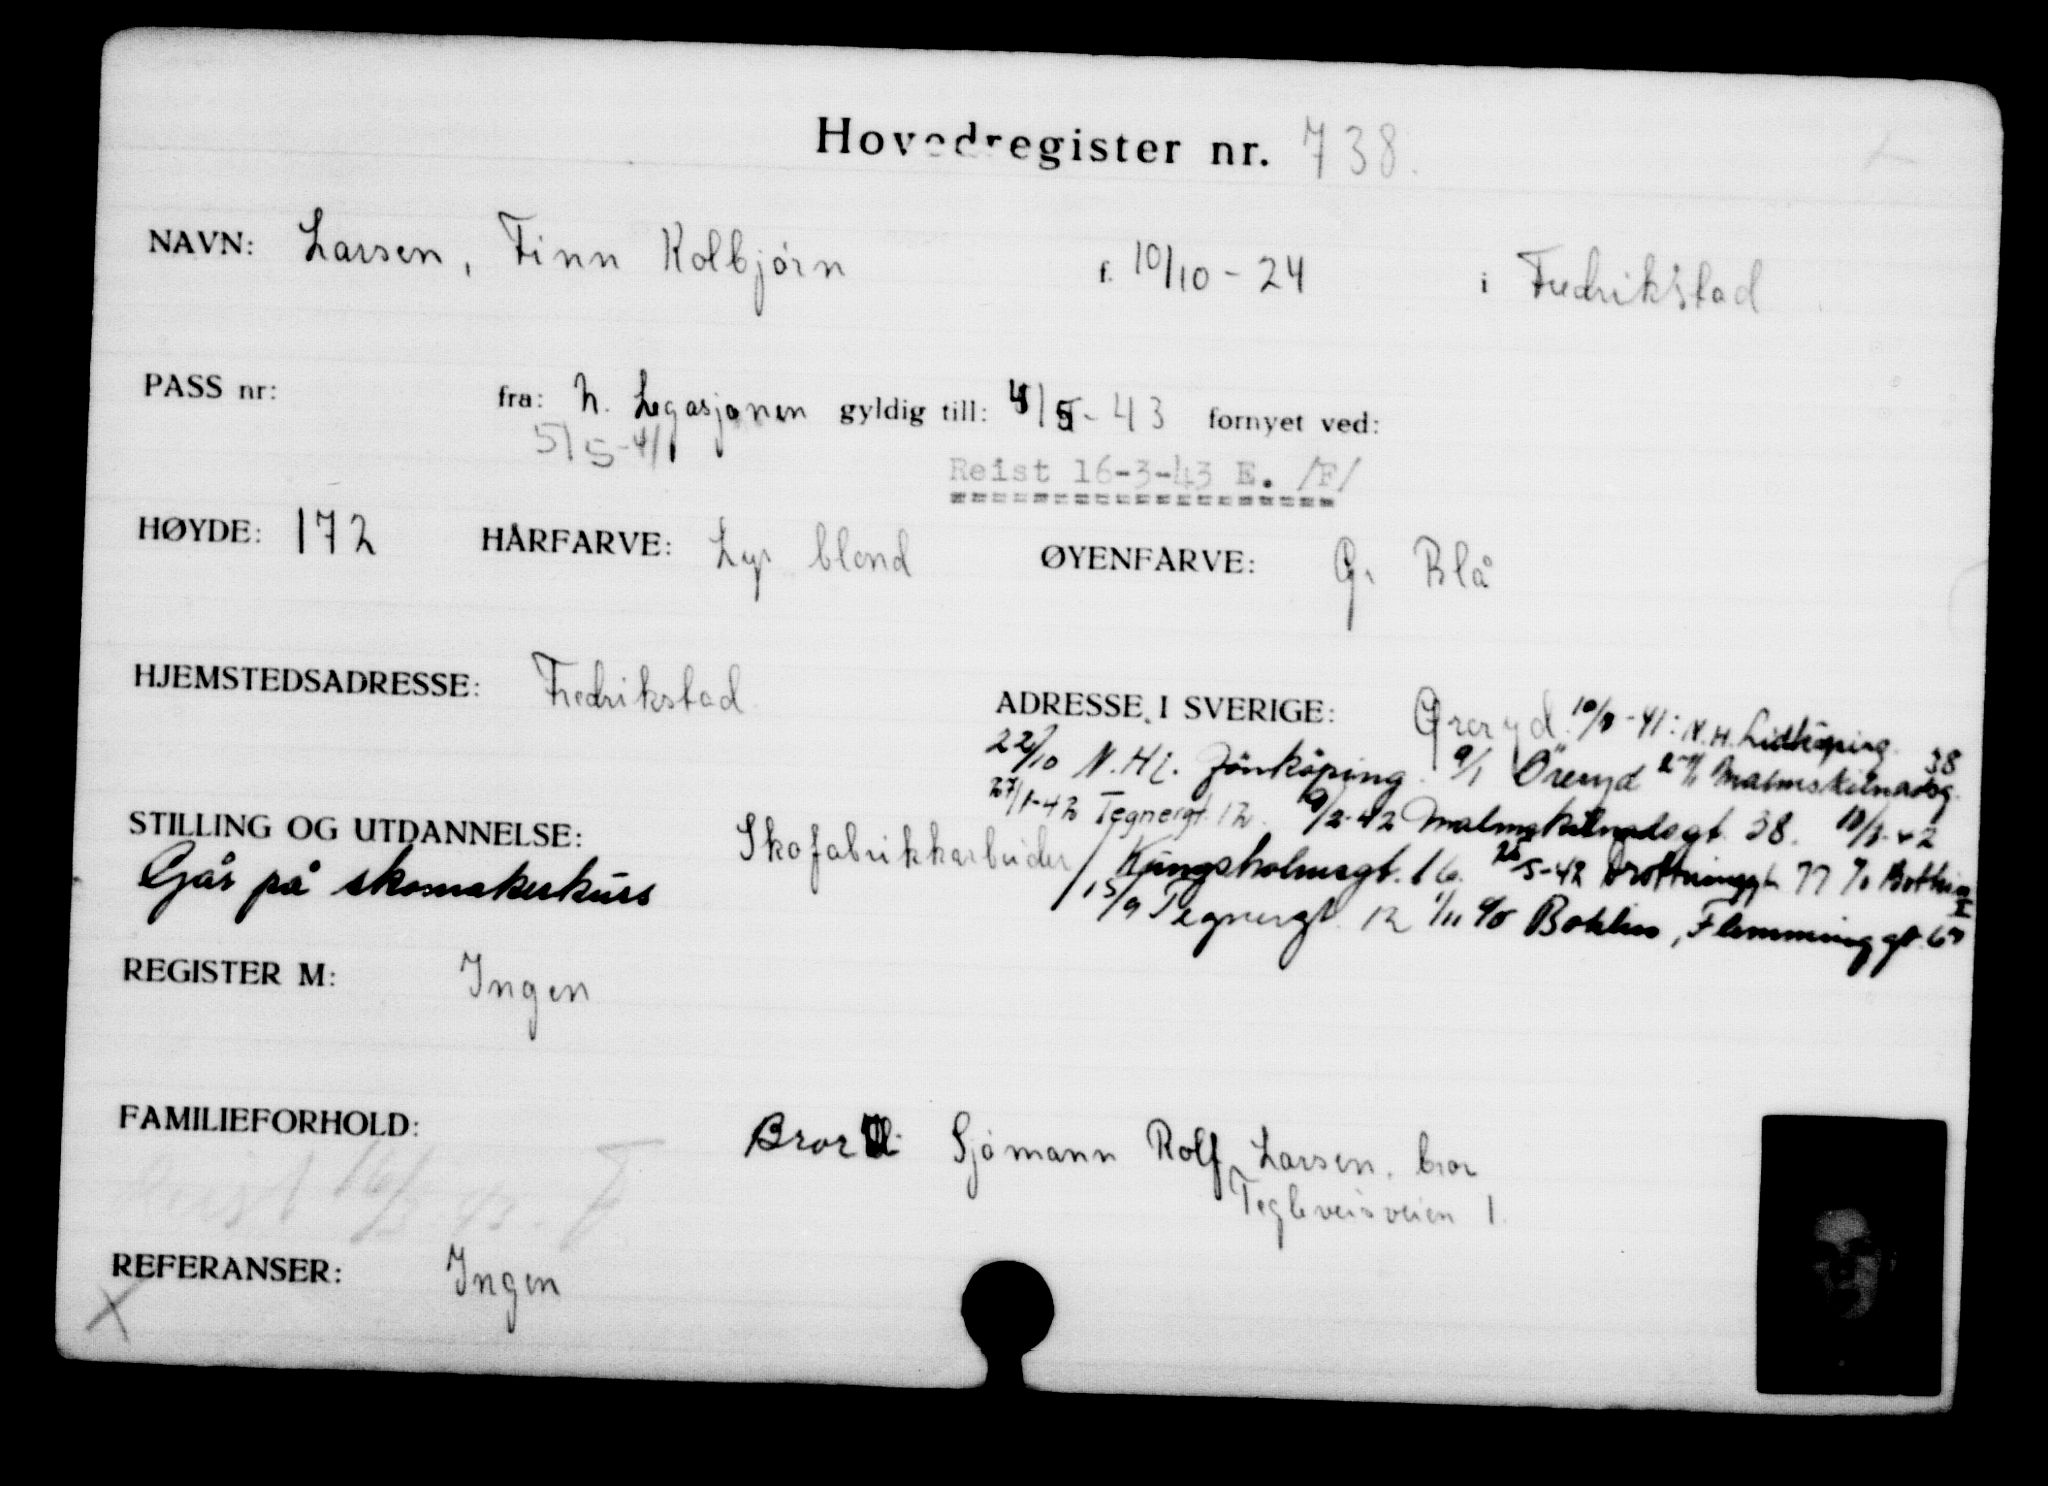 Hovedregister nr. 738.
NAVN: Larsen, Finn Kolbjörn f. 10/10-24 i Fredrikstad
PASS nr: fra: N. Legasjonen gyldig till: 4/5-43 fornyet ved:
5/5-41
Reist 16-3-43 E. /F/
HØYDE: 172 HÅRFARVE: Lys blond ØYENFARVE: G. Blå
HJEMSTEDSADRESSE: Fredrikstad
ADRESSE I SVERIGE: -41: N.H. Lidköping.
22/10 N.H. Jönköping. 9/1 Öreryd Malmskilnadsg. 38
27/1-42 Tegnergt. 12. 9/2-42 Malmskilnadsgt. 38. -42
STILLING OG UTDANNELSE: Skofabrikkarbeider
Går på skomakerkurs
Kungsholmsgt. 16. 5-42 Drottninggt. 77 c/o
15/9 Tegnergt. 12 1/11 c/o Flemminggt.
REGISTER M: Ingen
FAMILIEFORHOLD: Bror Sjömann Rolf Larsen, bror
Tegleverksveien 1.
REFERANSER: Ingen
X